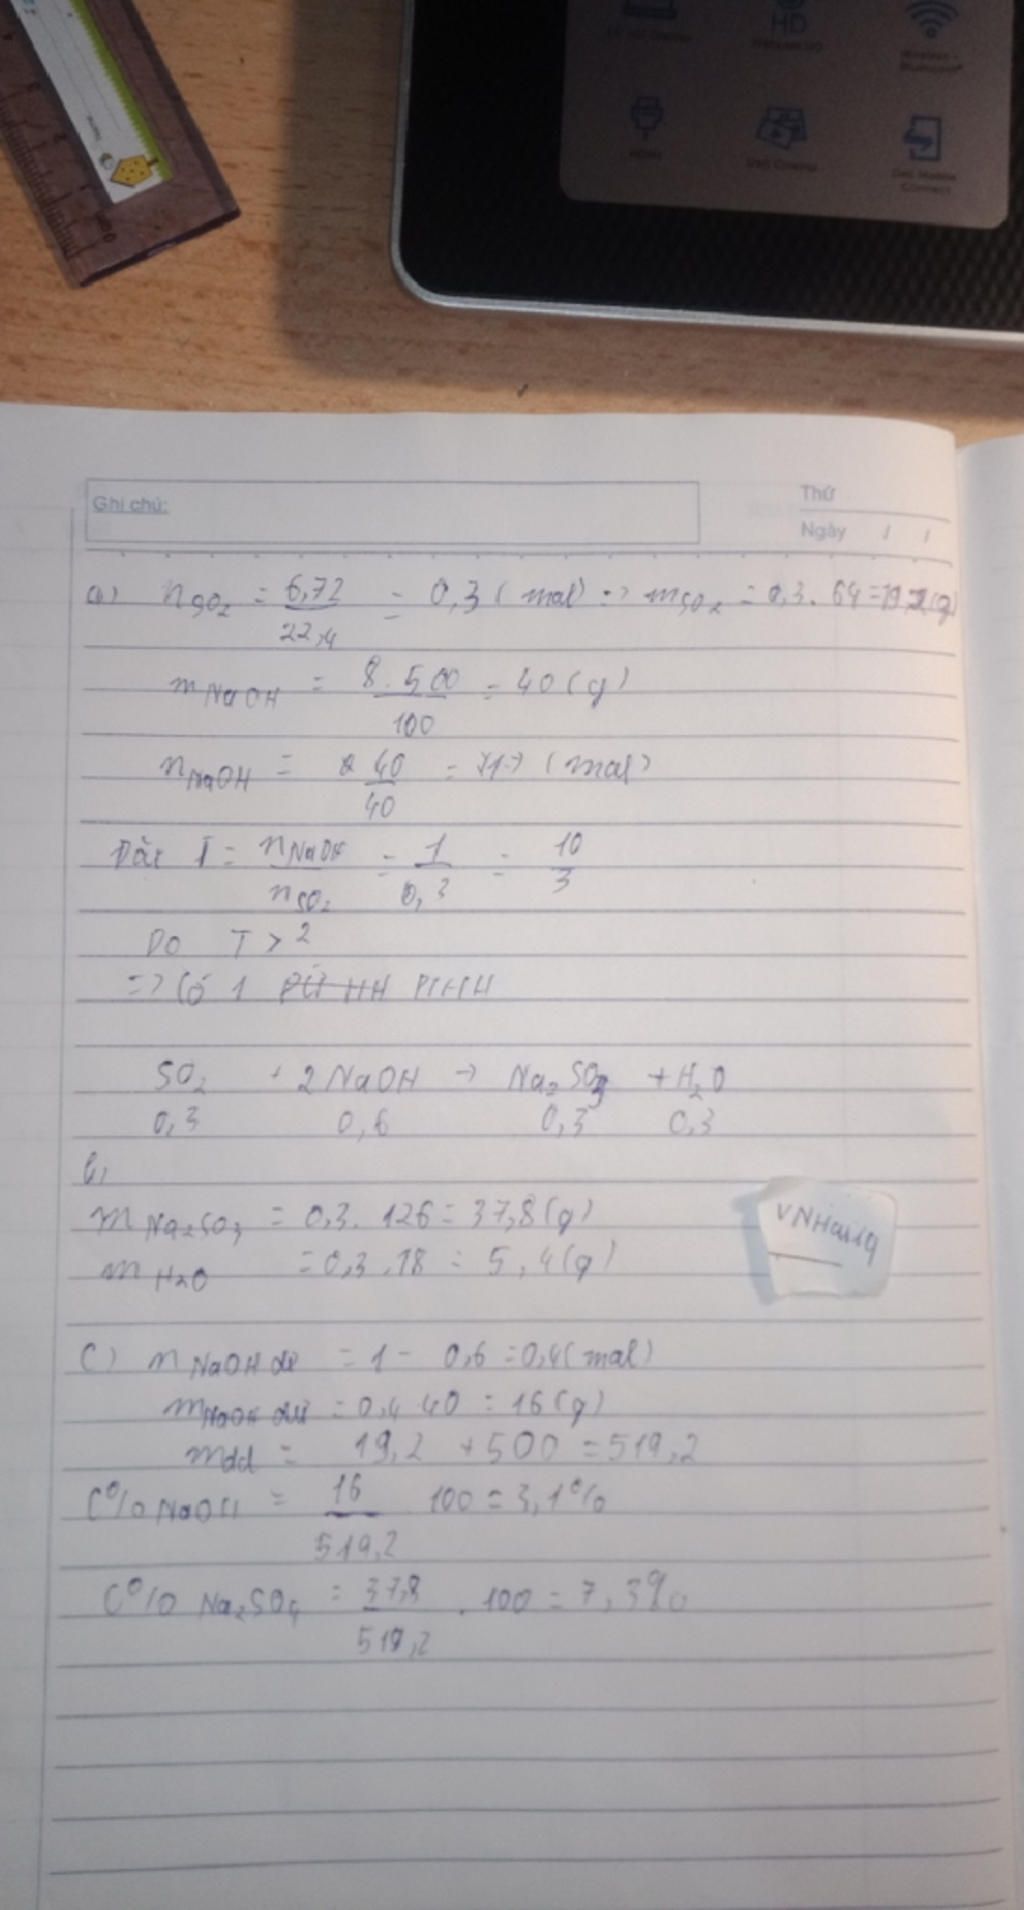 HD
Wireless +
Bluetooth®
HDMI
Dell Cinema
Dell Mobile
Connect
Ghi chú:
Thứ
Ngày / /
a) nSO2 = 6,72 / 22,4 = 0,3 (mol) => mSO2 = 0,3 . 64 = 19,2 (g)
mNaOH = 8 . 500 / 100 = 40 (g)
nNaOH = 40 / 40 = 1 (mol)
Đặt T = nNaOH / nSO2 = 1 / 0,3 = 10 / 3
Do T > 2
=> Có 1 PTHH
SO2 + 2NaOH → Na2SO3 + H2O
0,3 0,6 0,3 0,3
b)
mNa2SO3 = 0,3 . 126 = 37,8 (g)
mH2O = 0,3 . 18 = 5,4 (g)
VNHang
c) nNaOH dư = 1 - 0,6 = 0,4 (mol)
mNaOH dư = 0,4 . 40 = 16 (g)
mdd = 19,2 + 500 = 519,2
C% NaOH = 16 / 519,2 . 100 = 3,1%
C% Na2SO4 = 37,8 / 519,2 . 100 = 7,3%